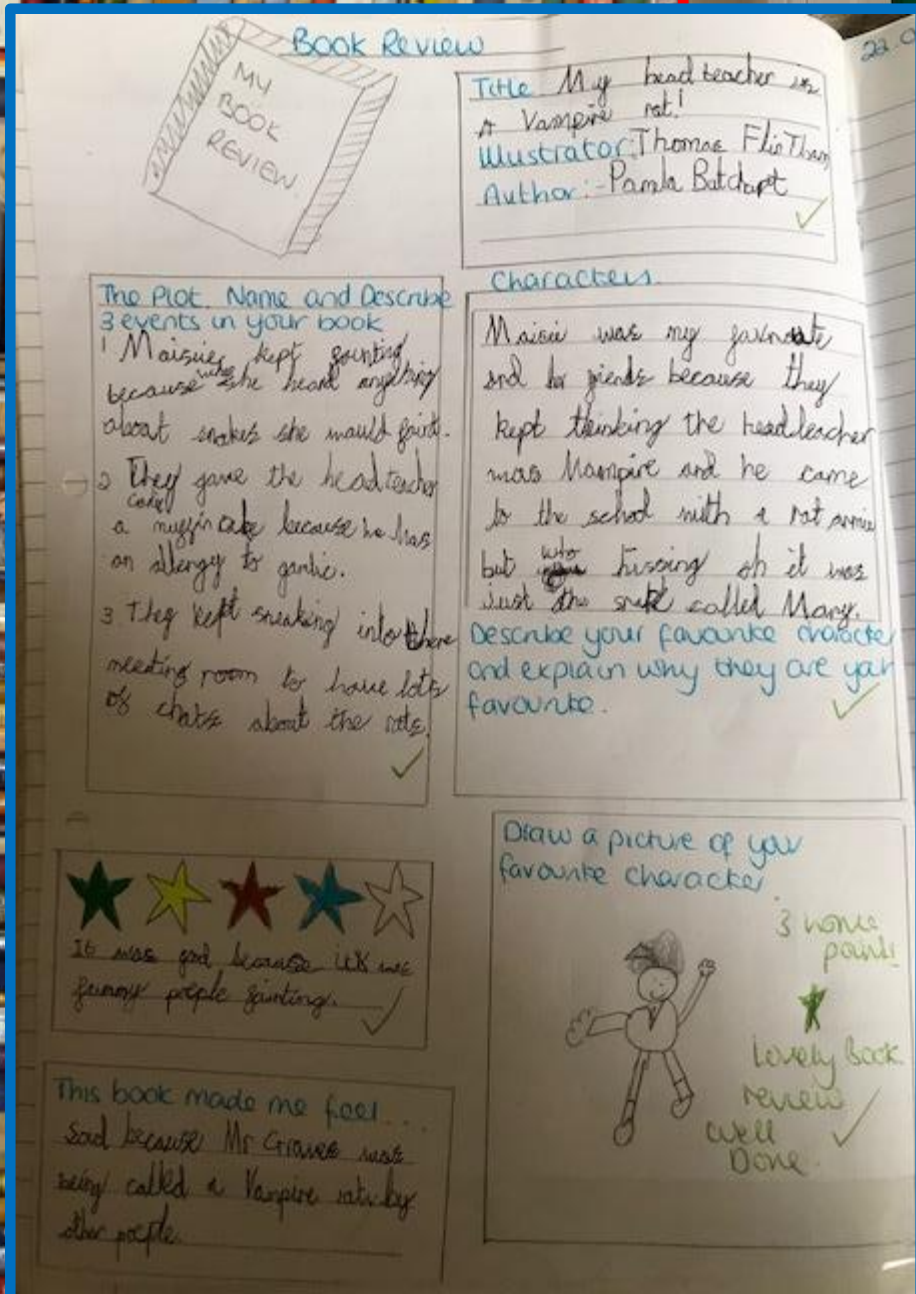 Book Review
22.
MY
BOOK
REVIEW
Title My head teacher is
A Vampire rat!
Illustrator: Thomas FlinTham
Author:- Pamla Butchart
The Plot. Name and Describe
3 events in your book
1 Maisie kept fainting
because she heard anything
about snakes she would faint.
2 They gave the headteacher
a muffin cake because he has
an allergy to garlic.
3 They kept sneaking into there
meeting room to have lots
of chats about the rats.
Characters
Maisie was my
and her friends because they
kept thinking the headteacher
was Vampire and he came
to the school with a rat
but who hissing oh it was
Just the called Mary.
Describe your favourite character
and explain why they are your
favourite.
It was good because it was
funny people fainting.
This book made me feel...
Sad because Mr Graves was
being called a Vampire rat by
other people.
Draw a picture of your
favourite character
3
points
Lovely Book
review
Well
Done.